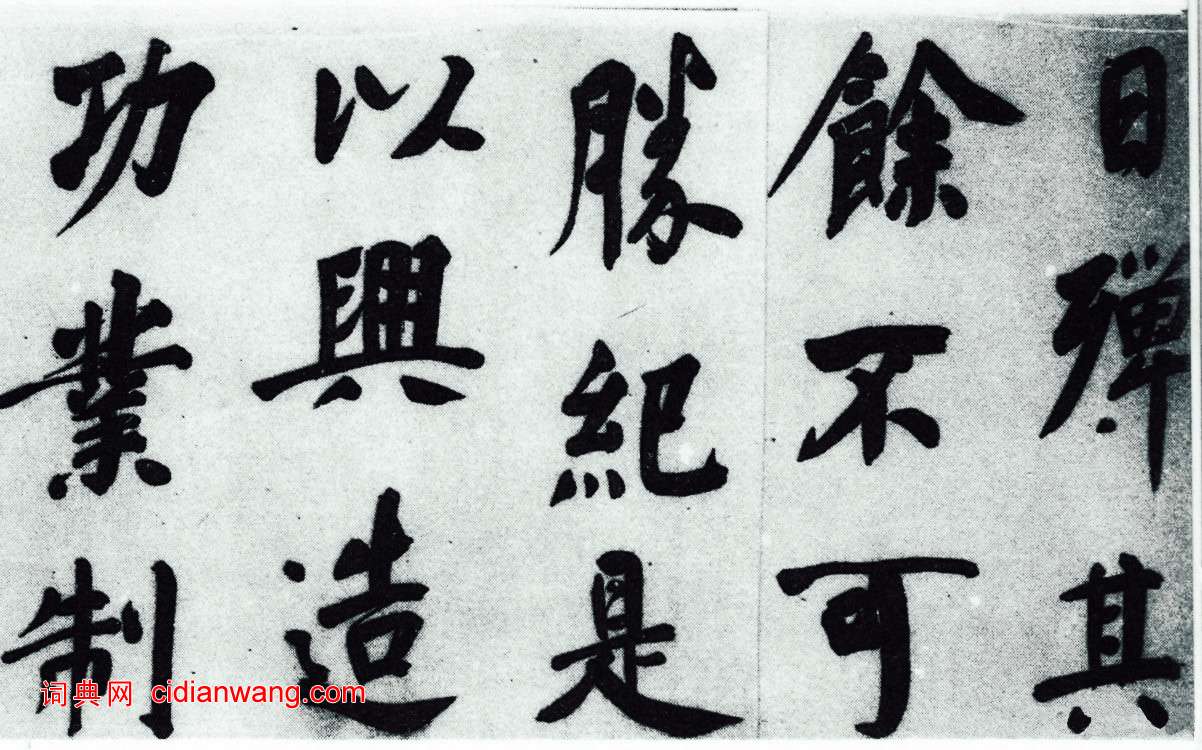 日殫其
餘不可
勝紀是
以興造
功業制
词典网 cidianwang.com